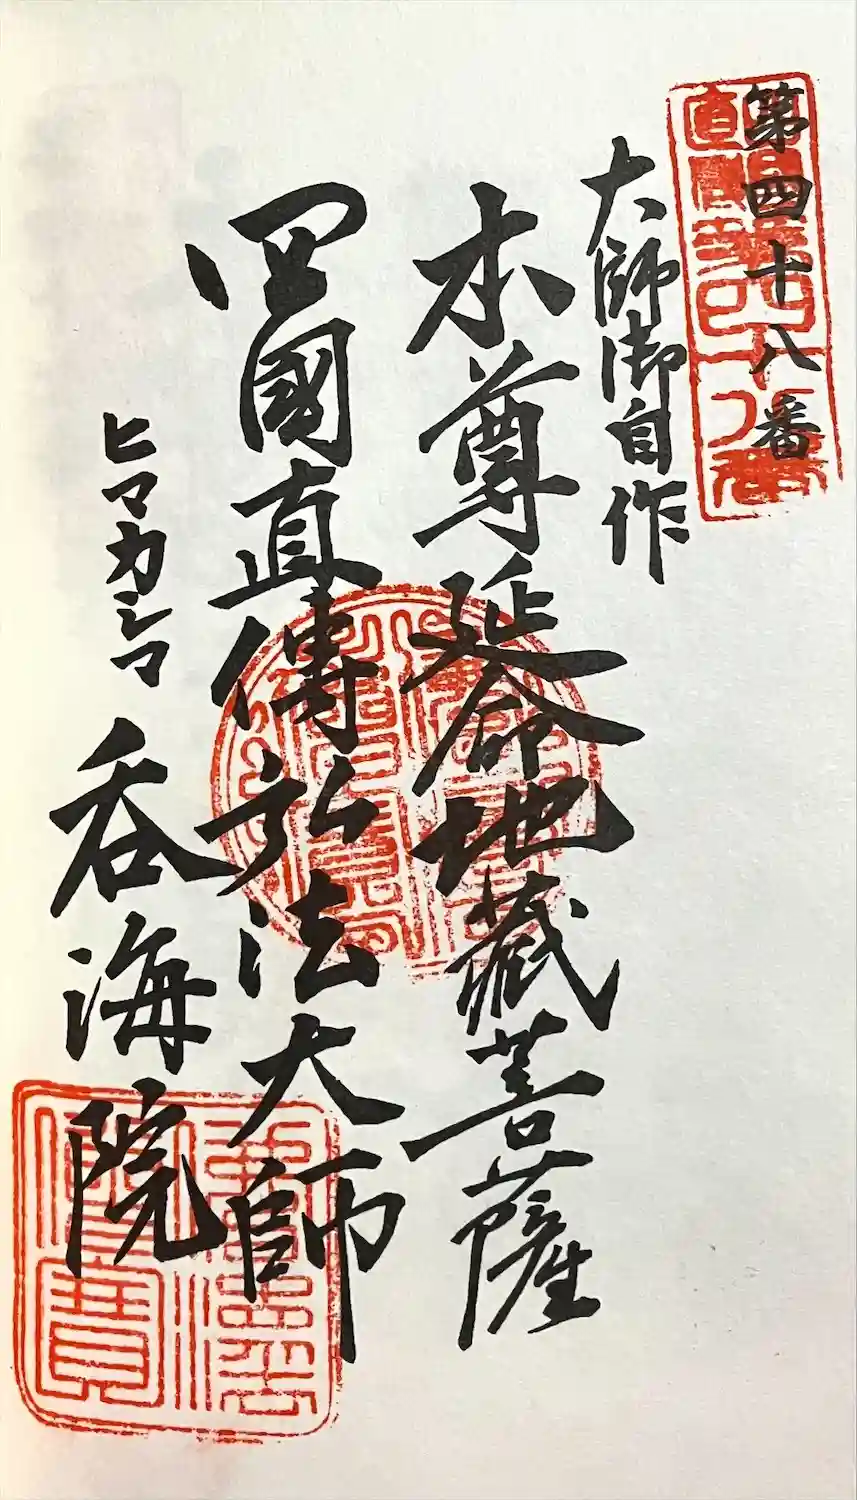 第四十八番
大師御自作
本尊延命地藏菩薩
四國直傳弘法大師
ヒマカシマ
呑海院